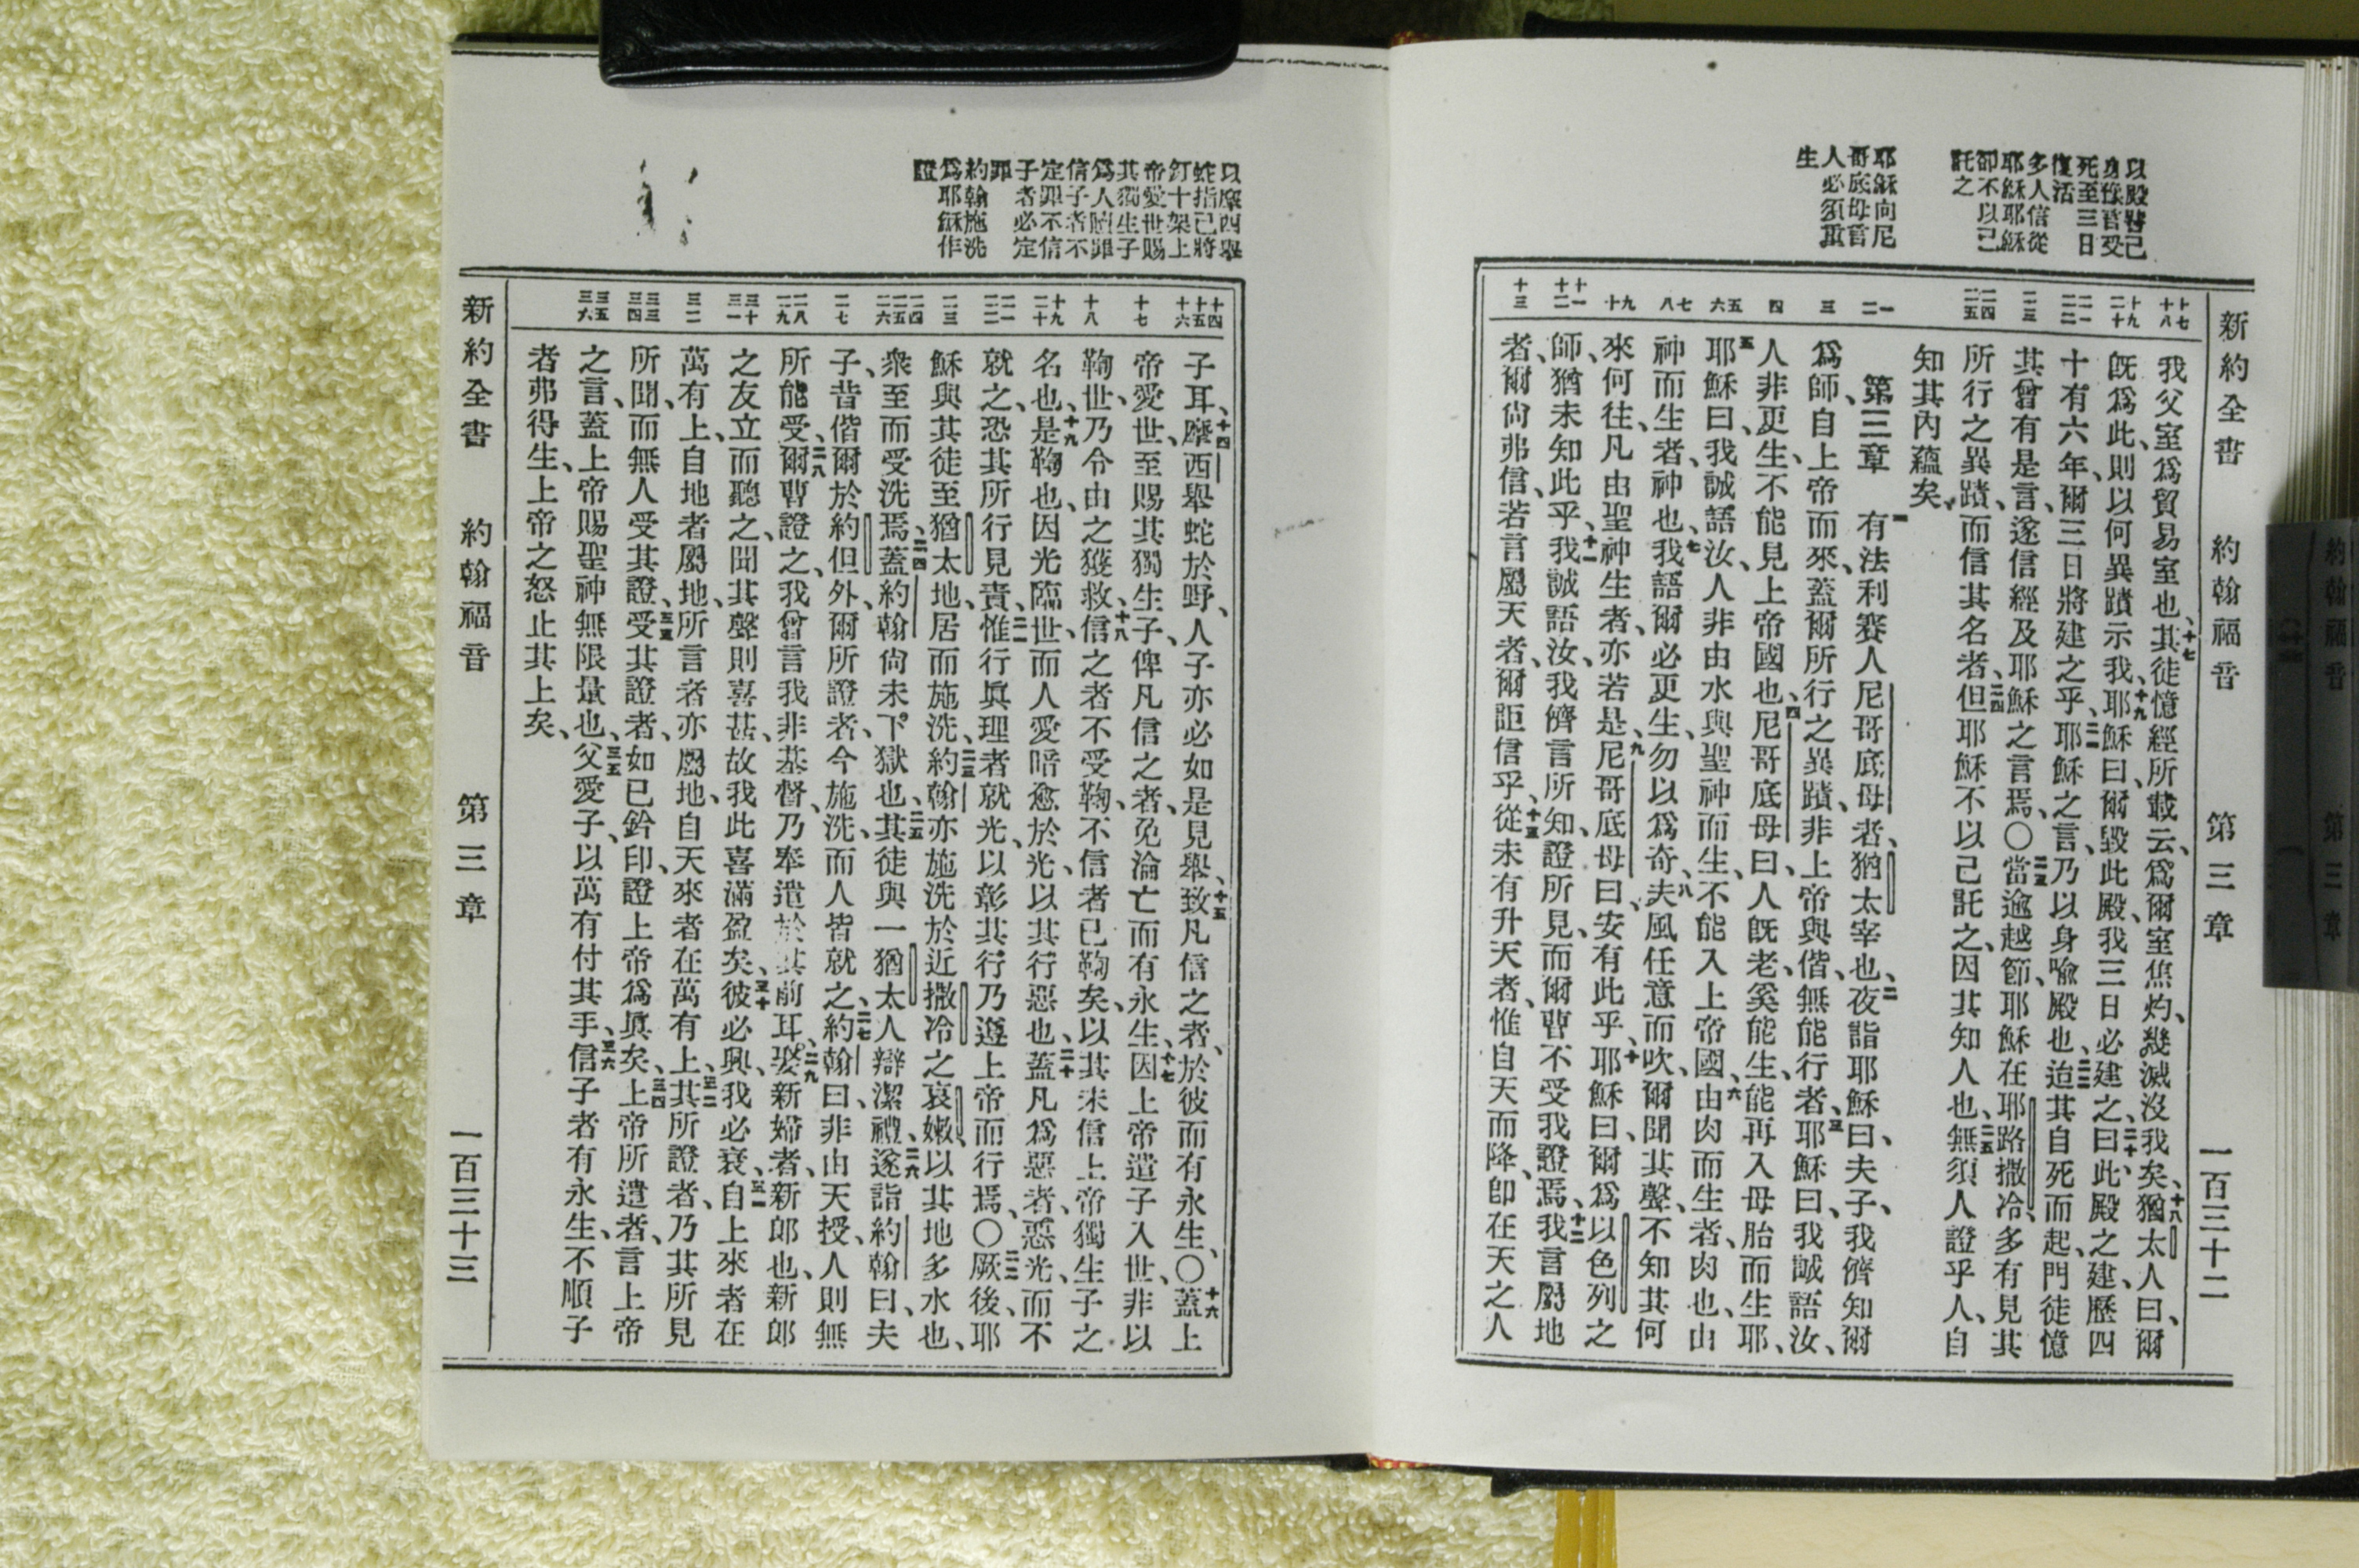 新約全書 約翰福音 第三章 一百三十二
以殿替己
身預言受
死至三日
復活
多人信從
耶穌耶穌
卻不以己
託之
耶穌向尼
哥底母言
人必須重
生
十七 十八
十九 二十
二一 二二
二三
二四 二五
一 二
三
四
五 六
七 八
九 十
十一 十二
十三
我父室爲貿易室也、十七其徒憶經所載云、爲爾室焦灼、幾滅沒我矣、十八猶太人曰、爾
旣爲此、則以何異蹟示我、十九耶穌曰、爾毀此殿、我三日必建之、二十曰此殿之建、歷四
十有六年、爾三日將建之乎、二一耶穌之言、乃以身喩殿也、二二迨其自死而起、門徒憶
其曾有是言、遂信經及耶穌之言焉、〇二三當逾越節、耶穌在耶路撒冷、多有見其
所行之異蹟、而信其名者、二四但耶穌不以己託之、因其知人也、二五無須人證乎人、自
知其內蘊矣、
第三章 一有法利賽人尼哥底母者、猶太宰也、二夜詣耶穌曰、夫子、我儕知爾
爲師、自上帝而來、蓋爾所行之異蹟、非上帝與偕、無能行者、三耶穌曰、我誠語汝、
人非更生、不能見上帝國也、四尼哥底母曰、人旣老、奚能生、能再入母胎而生耶、
五耶穌曰、我誠語汝、人非由水與聖神而生、不能入上帝國、六由肉而生者、肉也、由
神而生者、神也、七我語爾必更生、勿以爲奇、八夫風任意而吹、爾聞其聲、不知其何
來何往、凡由聖神生者、亦若是、九尼哥底母曰、安有此乎、十耶穌曰、爾爲以色列之
師、猶未知此乎、十一我誠語汝、我儕言所知、證所見、而爾曹不受我證焉、十二我言屬地
者、爾尙弗信、若言屬天者、爾詎信乎、十三從未有升天者、惟自天而降、卽在天之人
以摩西舉
蛇指己將
釘十架上
帝愛世賜
其獨生子
爲人贖罪
信子者不
定罪不信
子者必定
罪
約翰施洗
爲耶穌作
證
十四 十五 十六
十七
十八
十九 二十
二一 二二
二三
二四 二五 二六
二七
二八 二九
三十 三一
三二
三三 三四
三五 三六
子耳、十四摩西舉蛇於野、人子亦必如是見舉、十五致凡信之者、於彼而有永生、〇十六蓋上
帝愛世、至賜其獨生子、俾凡信之者、免淪亡而有永生、十七因上帝遣子入世、非以
鞫世、乃令由之獲救、十八信之者不受鞫、不信者已鞫矣、以其未信上帝獨生子之
名也、十九是鞫也、因光臨世、而人愛暗愈於光、以其行惡也、二十蓋凡爲惡者、惡光、而不
就之、恐其所行見責、二一惟行眞理者就光、以彰其行乃遵上帝而行焉、〇二二厥後、耶
穌與其徒至猶太地、居而施洗、二三約翰亦施洗於近撒冷之哀嫩、以其地多水也、
衆至而受洗焉、二四蓋約翰尙未下獄也、二五其徒與一猶太人辯潔禮、二六遂詣約翰曰、夫
子、昔偕爾於約但外、爾所證者、今施洗、而人皆就之、二七約翰曰、非由天授、人則無
所能受、二八爾曹證之、我曾言我非基督、乃奉遣於其前耳、二九娶新婦者、新郎也、新郎
之友立而聽之、聞其聲則喜甚、故我此喜滿盈矣、三十彼必興、我必衰、三一自上來者在
萬有上、自地者屬地、所言者亦屬地、自天來者在萬有上、三二其所證者、乃其所見
所聞、而無人受其證、三三受其證者、如已鈐印、證上帝爲眞矣、三四上帝所遣者、言上帝
之言、蓋上帝賜聖神無限量也、三五父愛子、以萬有付其手、三六信子者有永生、不順子
者弗得生、上帝之怒止其上矣、
新約全書 約翰福音 第三章 一百三十三